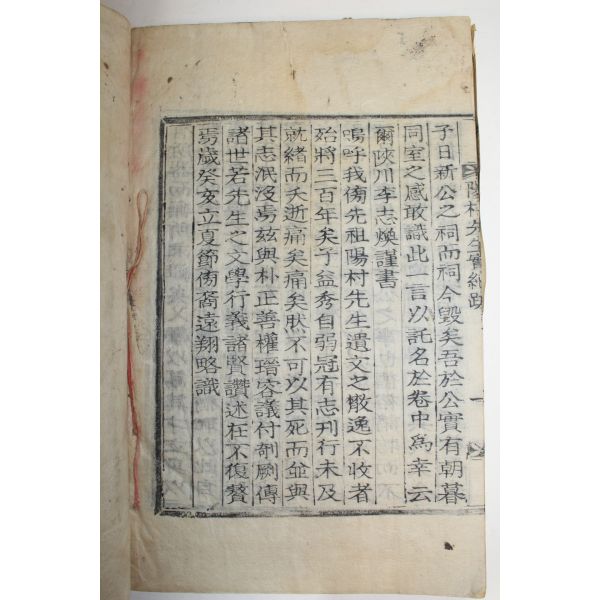 陽村先生實紀跋
子日新公之祠而祠今毁矣吾於公實有朝暮
同室之感敢識此一言以託名於卷中為幸云
爾陜川李志煥謹書
嗚呼我傍先祖陽村先生遺文之散逸不收者
殆將三百年矣子益秀自弱冠有志刊行未及
就緖而夭逝痛矣痛矣然不可以其死而並與
其志泯沒焉玆與朴正善權瑨容議付剞劂傳
諸世若先生之文學行義諸賢讚述在不復贅
焉歲癸亥立夏節傍裔遠翔略識